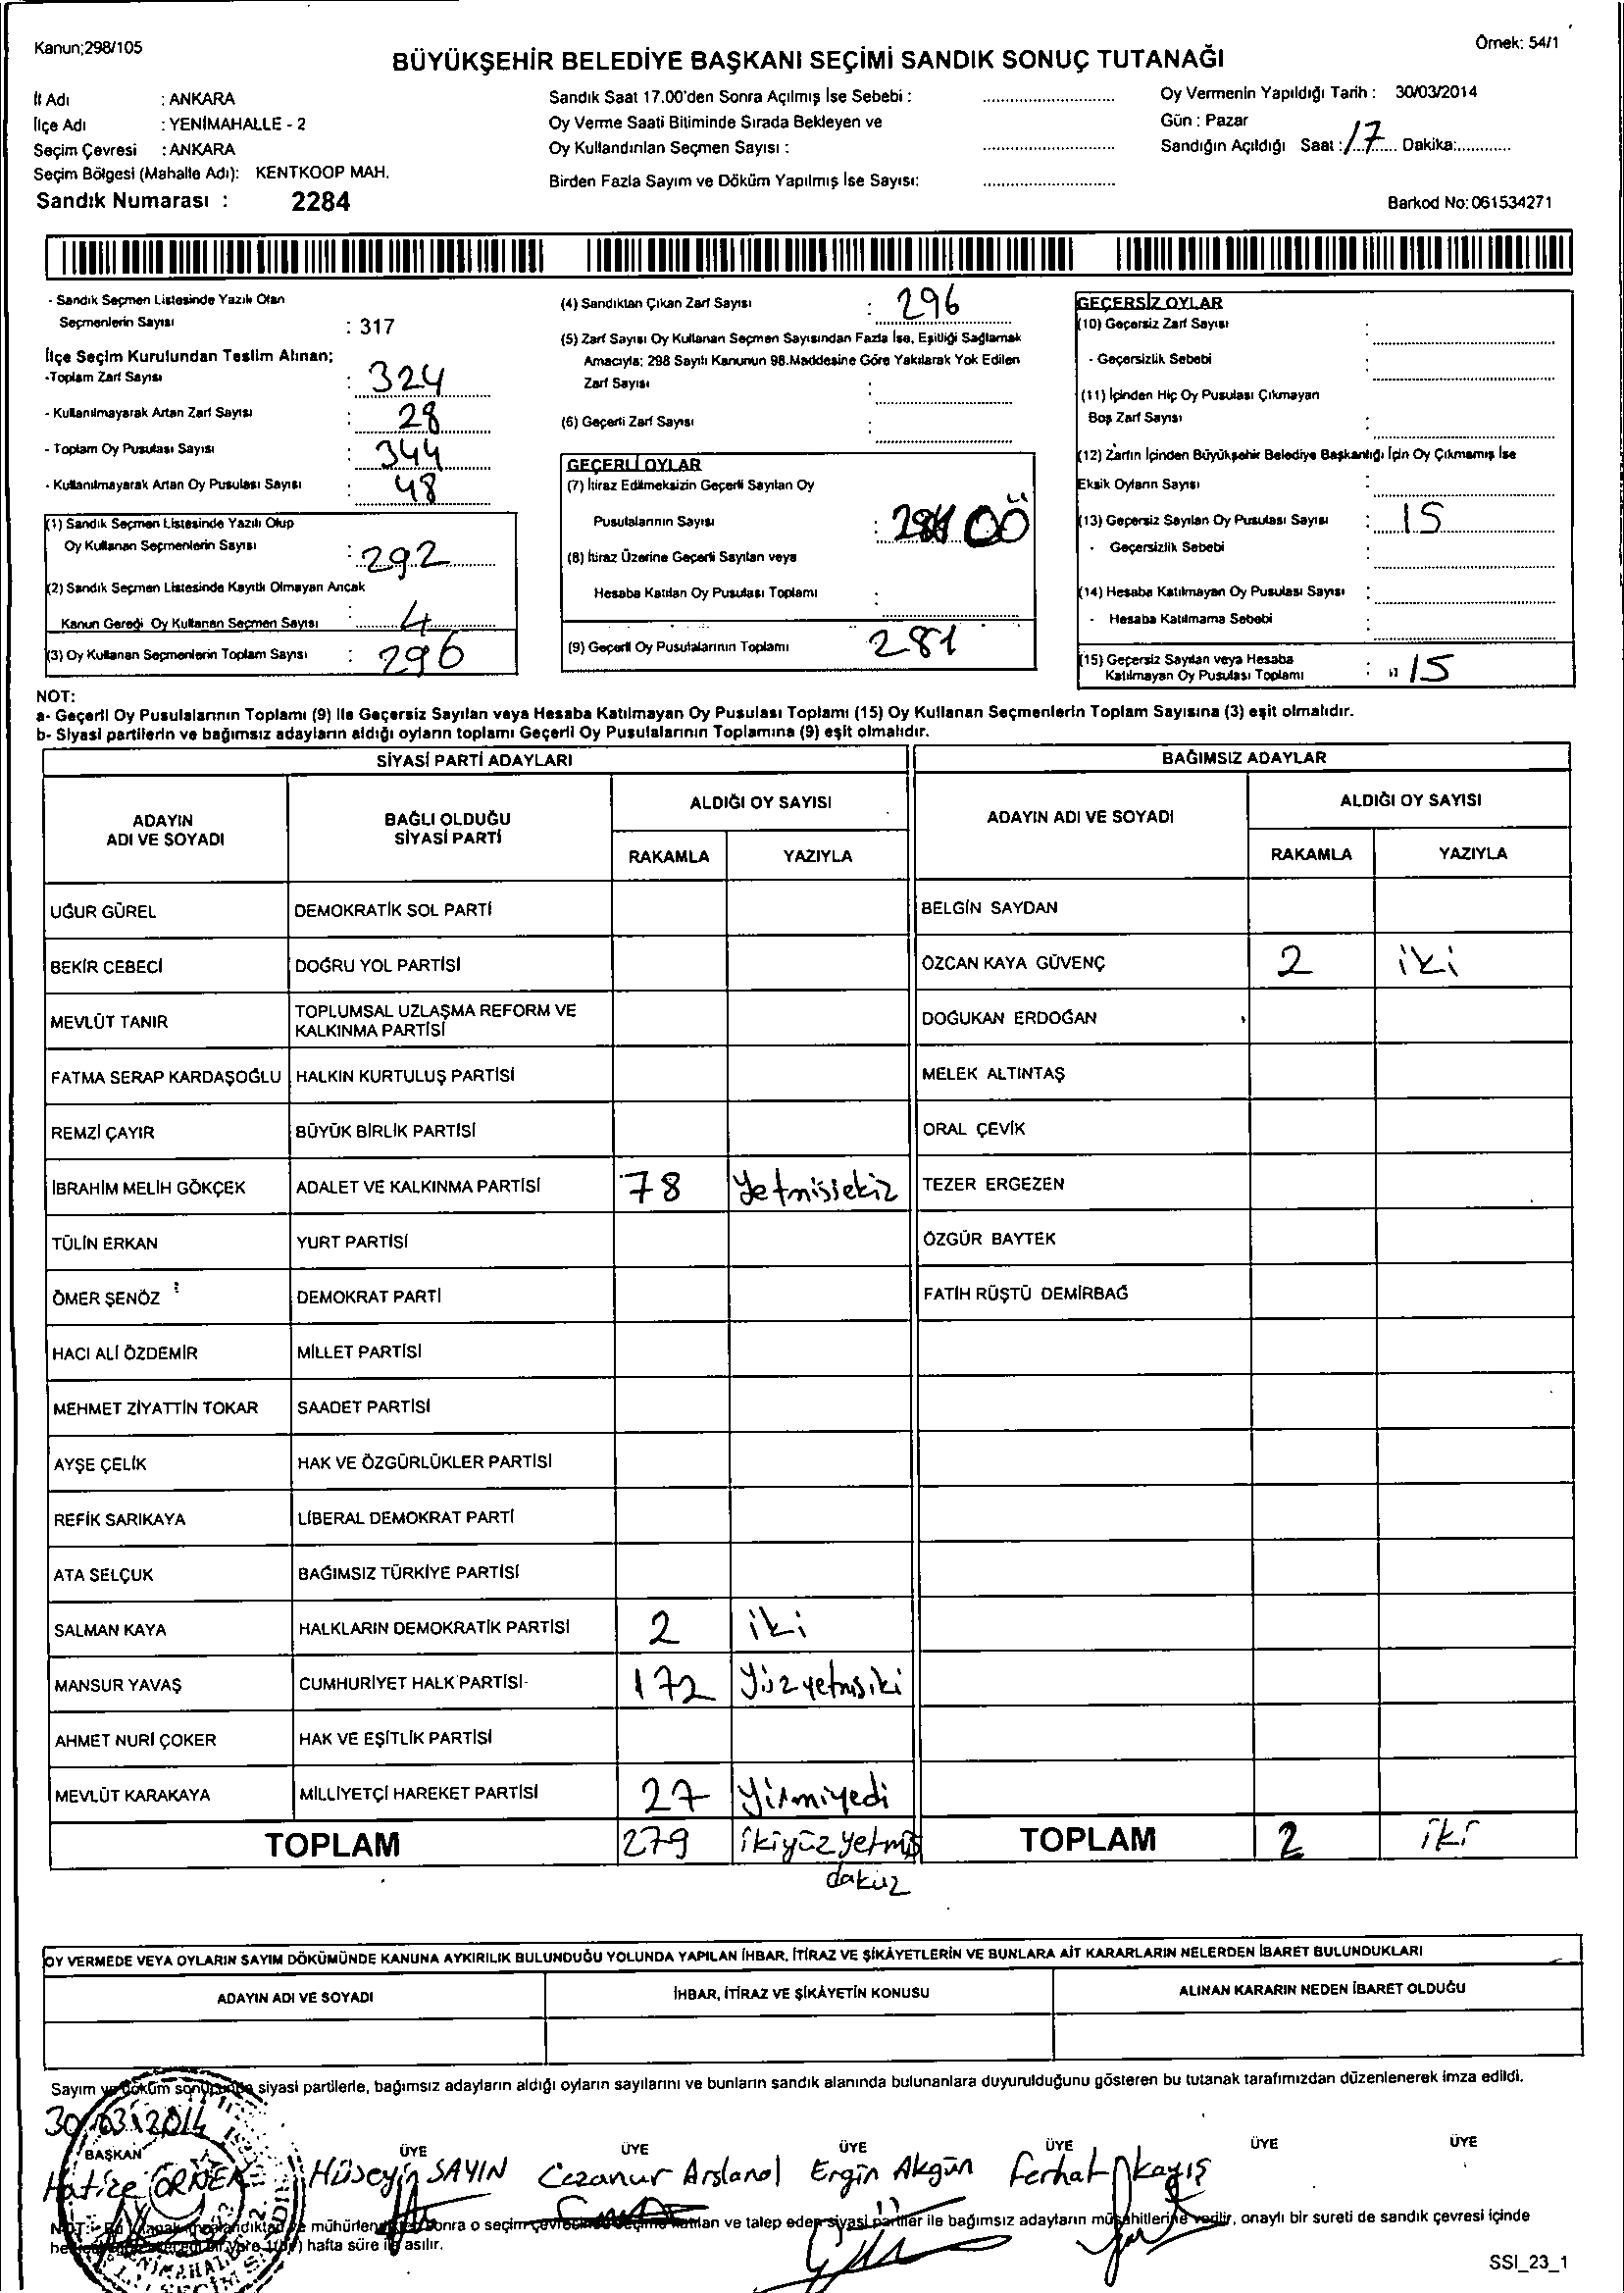 Kanun;298/105
Örnek: 54/1
BÜYÜKŞEHİR BELEDİYE BAŞKANI SEÇİMİ SANDIK SONUÇ TUTANAĞI
İl Adı : ANKARA
İlçe Adı : YENİMAHALLE - 2
Seçim Çevresi : ANKARA
Seçim Bölgesi (Mahalle Adı): KENTKOOP MAH.
Sandık Numarası : 2284
Sandık Saat 17.00'den Sonra Açılmış İse Sebebi :
Oy Verme Saati Bitiminde Sırada Bekleyen ve
Oy Kullandırılan Seçmen Sayısı :
Birden Fazla Sayım ve Döküm Yapılmış İse Sayısı:
Oy Vermenin Yapıldığı Tarih : 30/03/2014
Gün : Pazar
Sandığın Açıldığı Saat : 17 Dakika:
Barkod No: 061534271
- Sandık Seçmen Listesinde Yazılı Olan
Seçmenlerin Sayısı : 317
İlçe Seçim Kurulundan Teslim Alınan;
-Toplam Zarf Sayısı : 324
- Kullanılmayarak Artan Zarf Sayısı : 28
- Toplam Oy Pusulası Sayısı : 344
- Kullanılmayarak Artan Oy Pusulası Sayısı : 48
(1) Sandık Seçmen Listesinde Yazılı Olup
Oy Kullanan Seçmenlerin Sayısı : 292
(2) Sandık Seçmen Listesinde Kayıtlı Olmayan Ancak
Kanun Gereği Oy Kullanan Seçmen Sayısı : 4
(3) Oy Kullanan Seçmenlerin Toplam Sayısı : 296
(4) Sandıktan Çıkan Zarf Sayısı : 296
(5) Zarf Sayısı Oy Kullanan Seçmen Sayısından Fazla İse, Eşitliği Sağlamak
Amacıyla; 298 Sayılı Kanunun 98.Maddesine Göre Yakılarak Yok Edilen
Zarf Sayısı :
(6) Geçerli Zarf Sayısı :
GEÇERLİ OYLAR
(7) İtiraz Edilmeksizin Geçerli Sayılan Oy
Pusulalarının Sayısı :
(8) İtiraz Üzerine Geçerli Sayılan veya
Hesaba Katılan Oy Pusulası Toplamı :
(9) Geçerli Oy Pusulalarının Toplamı 281
GEÇERSİZ OYLAR
(10) Geçersiz Zarf Sayısı :
- Geçersizlik Sebebi :
(11) İçinden Hiç Oy Pusulası Çıkmayan
Boş Zarf Sayısı :
(12) Zarfın İçinden Büyükşehir Belediye Başkanlığı İçin Oy Çıkmamış İse
Eksik Oyların Sayısı :
(13) Geçersiz Sayılan Oy Pusulası Sayısı : 15
- Geçersizlik Sebebi :
(14) Hesaba Katılmayan Oy Pusulası Sayısı :
- Hesaba Katılmama Sebebi :
(15) Geçersiz Sayılan veya Hesaba
Katılmayan Oy Pusulası Toplamı : 15
NOT:
a- Geçerli Oy Pusulalarının Toplamı (9) ile Geçersiz Sayılan veya Hesaba Katılmayan Oy Pusulası Toplamı (15) Oy Kullanan Seçmenlerin Toplam Sayısına (3) eşit olmalıdır.
b- Siyasi partilerin ve bağımsız adayların aldığı oyların toplamı Geçerli Oy Pusulalarının Toplamına (9) eşit olmalıdır.
SİYASİ PARTİ ADAYLARI BAĞIMSIZ ADAYLAR
ADAYIN
ADI VE SOYADI
BAĞLI OLDUĞU
SİYASİ PARTİ
ALDIĞI OY SAYISI
RAKAMLA YAZIYLA
ADAYIN ADI VE SOYADI
ALDIĞI OY SAYISI
RAKAMLA YAZIYLA
UĞUR GÜREL DEMOKRATİK SOL PARTİ BELGİN SAYDAN
BEKİR CEBECİ DOĞRU YOL PARTİSİ ÖZCAN KAYA GÜVENÇ 2 iki
MEVLÜT TANIR TOPLUMSAL UZLAŞMA REFORM VE
KALKINMA PARTİSİ DOĞUKAN ERDOĞAN
FATMA SERAP KARDAŞOĞLU HALKIN KURTULUŞ PARTİSİ MELEK ALTINTAŞ
REMZİ ÇAYIR BÜYÜK BİRLİK PARTİSİ ORAL ÇEVİK
İBRAHİM MELİH GÖKÇEK ADALET VE KALKINMA PARTİSİ 78 Yetmişsekiz TEZER ERGEZEN
TÜLİN ERKAN YURT PARTİSİ ÖZGÜR BAYTEK
ÖMER ŞENÖZ DEMOKRAT PARTİ FATİH RÜŞTÜ DEMİRBAĞ
HACI ALİ ÖZDEMİR MİLLET PARTİSİ
MEHMET ZİYATTİN TOKAR SAADET PARTİSİ
AYŞE ÇELİK HAK VE ÖZGÜRLÜKLER PARTİSİ
REFİK SARIKAYA LİBERAL DEMOKRAT PARTİ
ATA SELÇUK BAĞIMSIZ TÜRKİYE PARTİSİ
SALMAN KAYA HALKLARIN DEMOKRATİK PARTİSİ 2 iki
MANSUR YAVAŞ CUMHURİYET HALK PARTİSİ 172 Yüzyetmişiki
AHMET NURİ ÇOKER HAK VE EŞİTLİK PARTİSİ
MEVLÜT KARAKAYA MİLLİYETÇİ HAREKET PARTİSİ 27 Yirmiyedi
TOPLAM 279 ikiyüzyetmiş TOPLAM 2 iki
dakuz
OY VERMEDE VEYA OYLARIN SAYIM DÖKÜMÜNDE KANUNA AYKIRILIK BULUNDUĞU YOLUNDA YAPILAN İHBAR, İTİRAZ VE ŞİKÂYETLERİN VE BUNLARA AİT KARARLARIN NELERDEN İBARET BULUNDUKLARI
ADAYIN ADI VE SOYADI İHBAR, İTİRAZ VE ŞİKÂYETİN KONUSU ALINAN KARARIN NEDEN İBARET OLDUĞU
Sayım ve döküm sonucunda siyasi partilerle, bağımsız adayların aldığı oyların sayılarını ve bunların sandık alanında bulunanlara duyurulduğunu gösteren bu tutanak tarafımızdan düzenlenerek imza edildi.
30/03/2014
BAŞKAN ÜYE ÜYE ÜYE ÜYE ÜYE ÜYE
Hatice ÖRNEK Hüseyin SAYIN Cezanur Arslanol Ergin Akgün Ferhat Kayış
NOT:- Bu tutanak mühürlen sonra o seçim ve talep eden siyasi partiler ile bağımsız adayların müşahitlerine verilir, onaylı bir sureti de sandık çevresi içinde
hafta süre ile asılır.
SSI_23_1